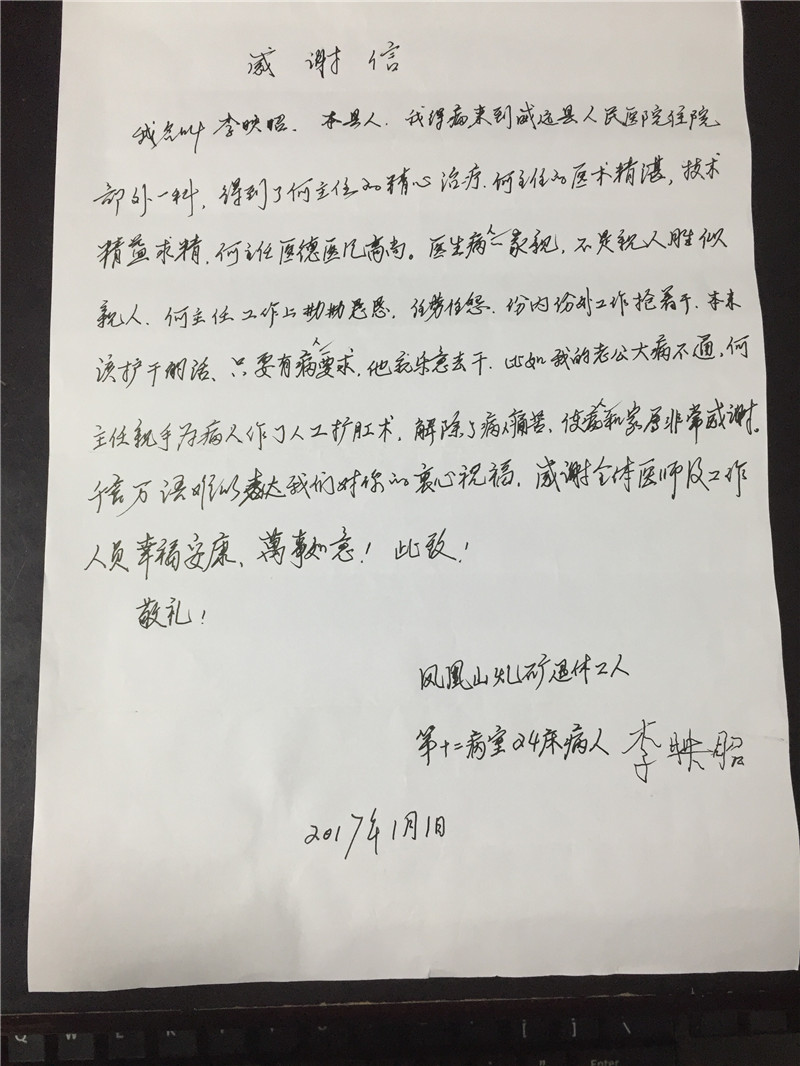 感谢信
我名叫李映昭.本县人.我得病来到威远县人民医院住院
部外一科,得到了何主任的精心治疗.何主任的医术精湛,技术
精益求精,何主任医德医风高尚。医生病人一家亲,不是亲人胜似
亲人.何主任工作上勤勤恳恳,任劳任怨.份内份外工作抢着干.本来
该护干的活、只要有病人要求,他就乐意去干.比如我的老公大病不通,何
主任亲手为病人作了人工扩肛术,解除了病人痛苦、使病人和家属非常感谢。
千言万语难以表达我们对你的衷心祝福,感谢全体医师及工作
人员幸福安康、萬事如意!此致!
敬礼!
凤凰山矿退休工人
第十二病室24床病人 李映昭
2017年1月1日
Q W E R T Y [ ] \
" Enter